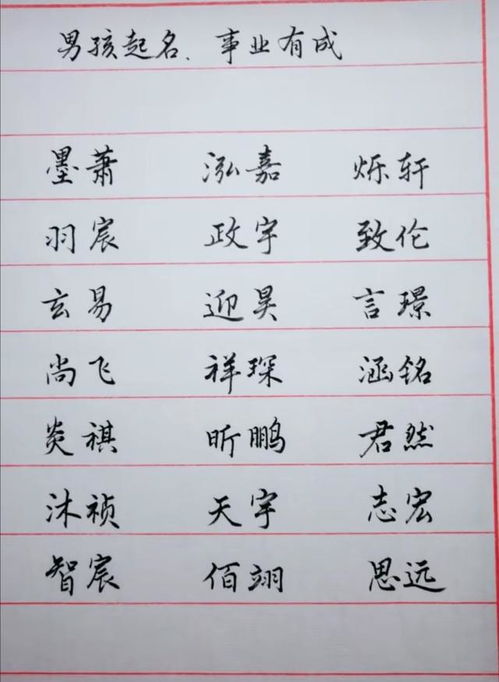 男孩起名、事业有成
墨萧 泓嘉 烁轩
羽宸 政宇 致伦
玄易 迎昊 言璟
尚飞 祥琛 涵铭
炎祺 昕鹏 君然
沐祯 天宇 志宏
智宸 佰翊 思远